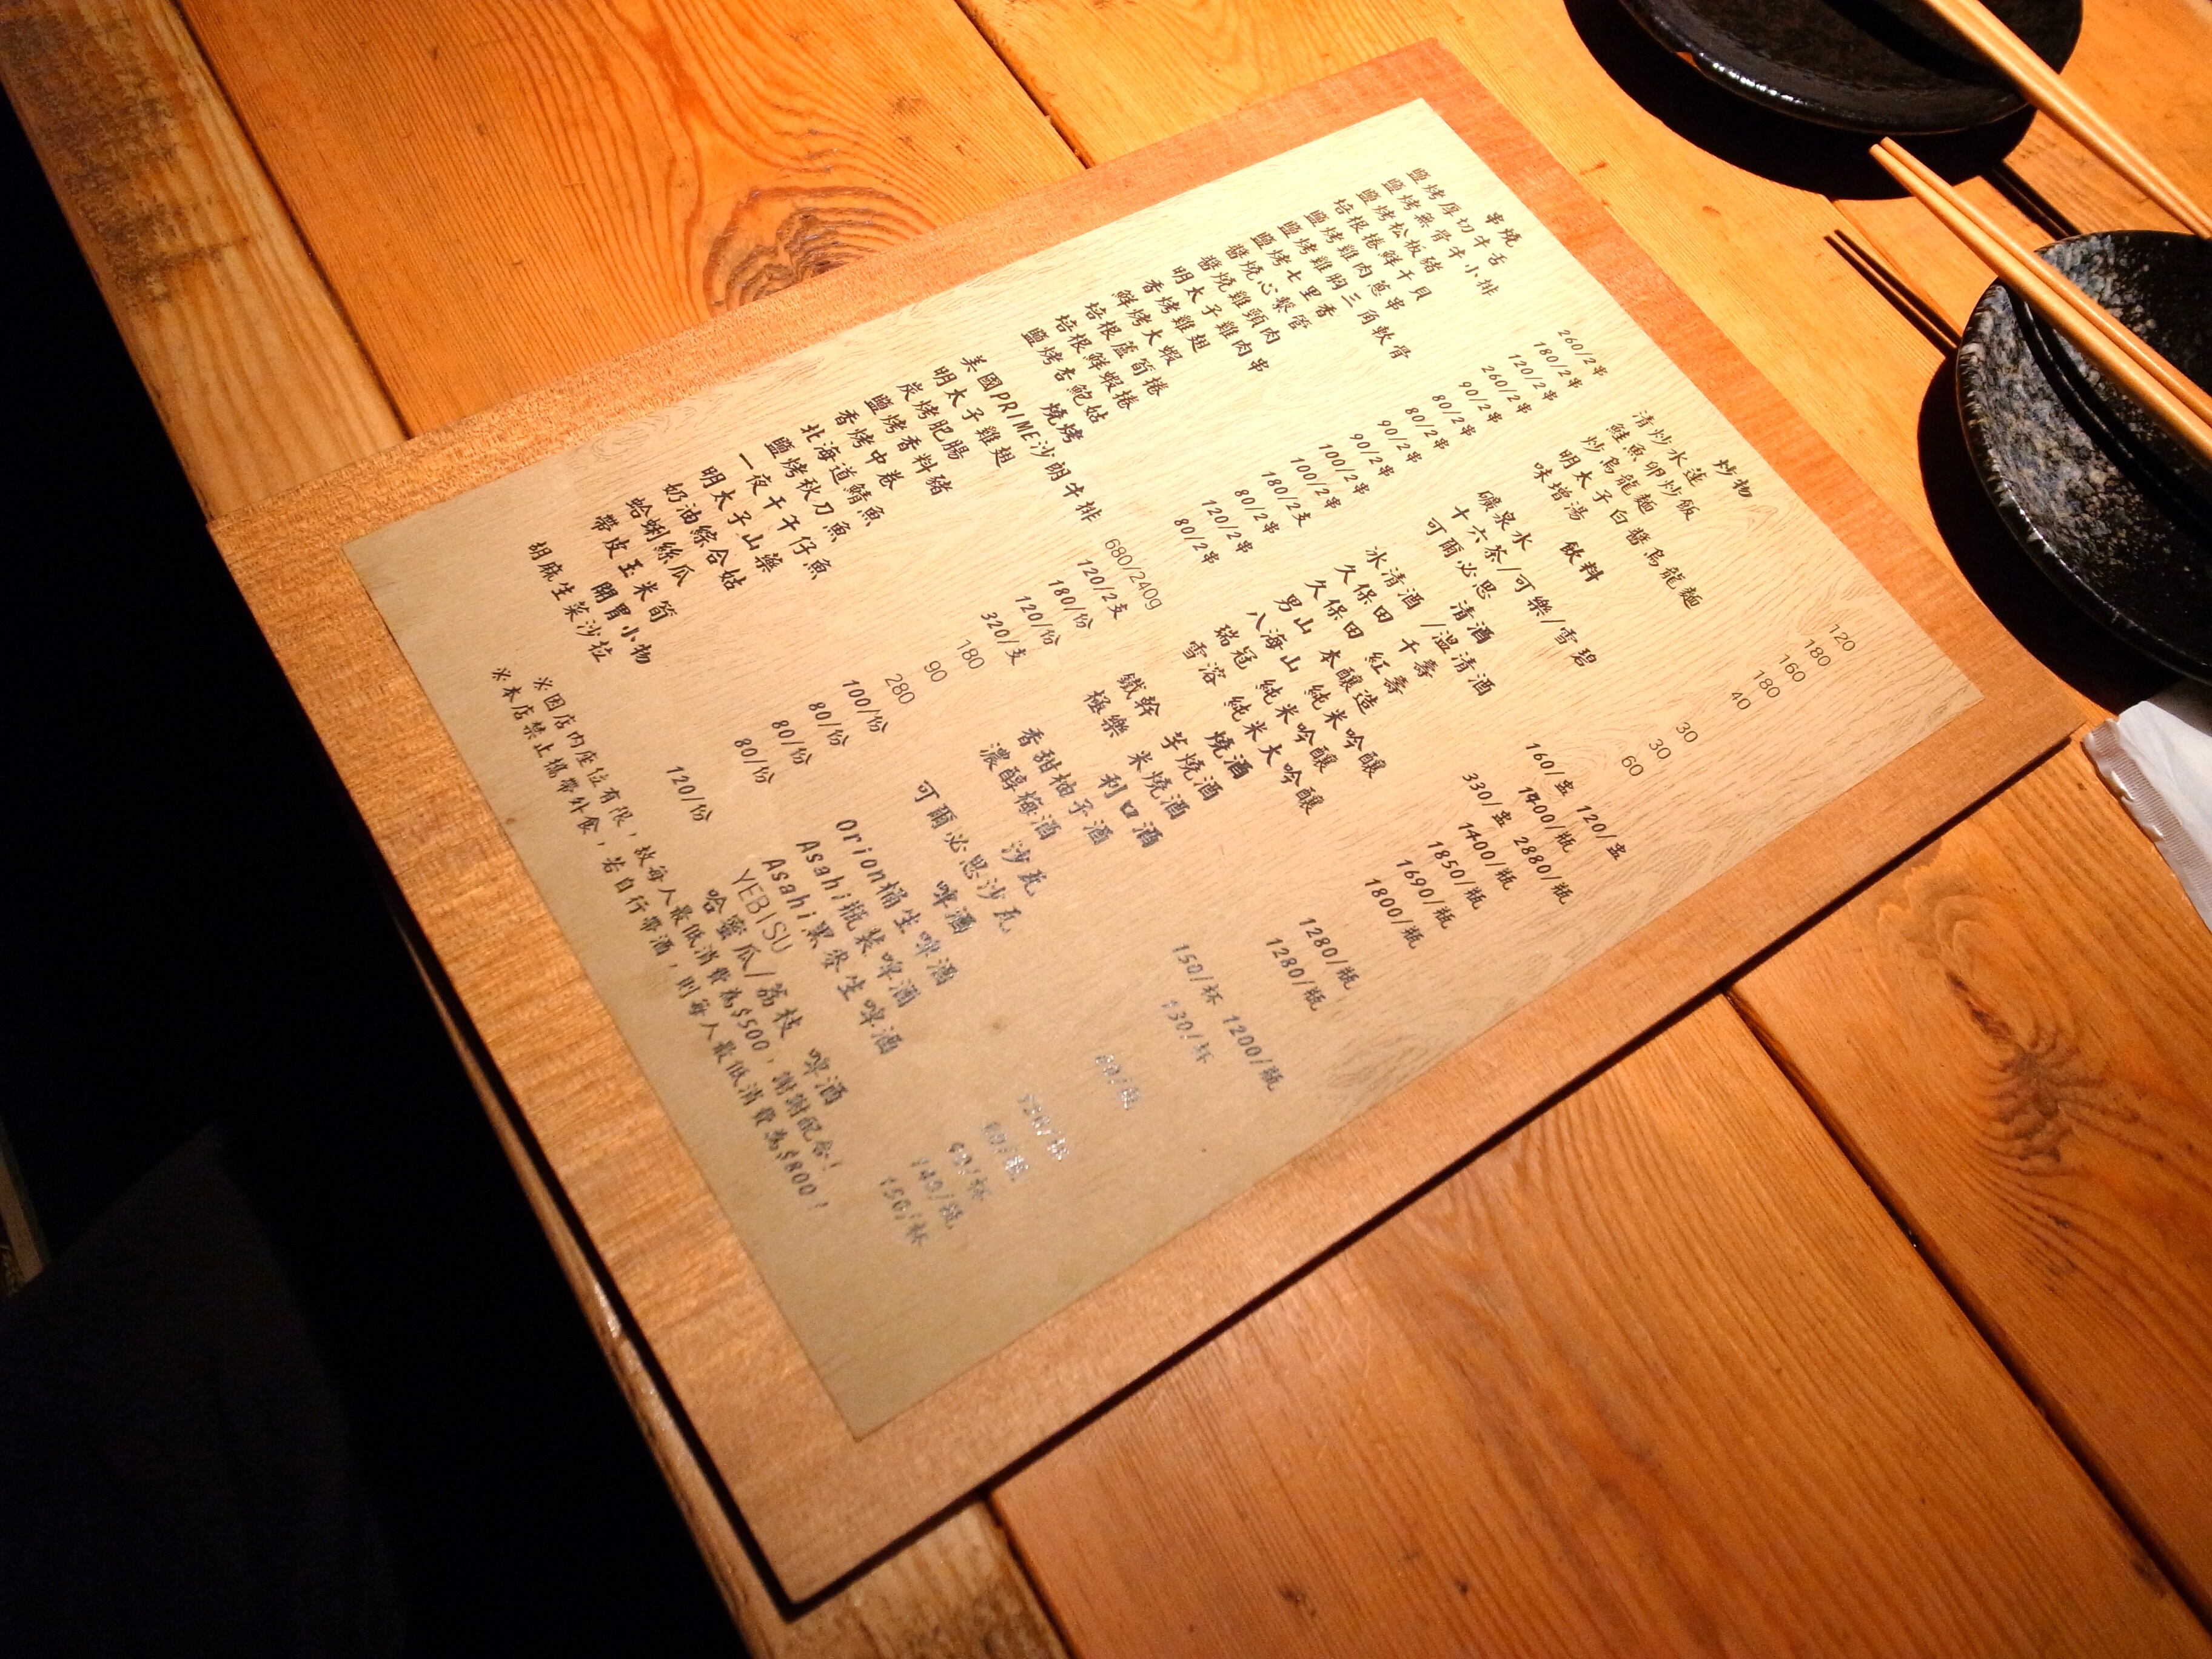 串燒
鹽烤厚切牛舌 260/2串
鹽烤無骨牛小排 180/2串
鹽烤松板豬 120/2串
培根捲鮮干貝 260/2串
鹽烤雞肉蔥串 90/2串
鹽烤雞胸三角軟骨 80/2串
鹽烤七里香 80/2串
醬燒心繫管 90/2串
醬燒雞頸肉 90/2串
明太子雞肉串 100/2串
香烤雞翅 100/2串
鮮烤大蝦 180/2支
培根蘆筍捲 80/2串
培根鮮蝦捲 120/2串
鹽烤杏鮑菇 80/2串
燒烤
美國PRIME沙朗牛排 680/240g
明太子雞翅 120/2支
炭烤肥腸 180/份
鹽烤香料豬 120/份
香烤中卷 320/支
北海道鯖魚 180
鹽烤秋刀魚 90
一夜干午仔魚 280
明太子山藥 100/份
奶油綜合菇 80/份
蛤蜊絲瓜 80/份
帶皮玉米筍 80/份
開胃小物
胡麻生菜沙拉 120/份
炒物
清炒水蓮 120
鮭魚卵炒飯 180
炒烏龍麵 160
明太子白醬烏龍麵 180
味增湯 40
飲料
礦泉水 30
十六茶/可樂/雪碧 30
可爾必思 60
清酒
冰清酒/溫清酒 160/壺 120/壺
久保田 千壽 330/壺 1400/瓶
久保田 紅壽 2880/瓶
男山 本釀造 1400/瓶
八海山 純米吟釀 1850/瓶
瑞冠 純米吟釀 1690/瓶
雪溶 純米大吟釀 1800/瓶
燒酒
鐵幹 芋燒酒 1280/瓶
極樂 米燒酒 1280/瓶
利口酒
香甜柚子酒 150/杯 1200/瓶
濃醇梅酒 130/杯
沙瓦
可爾必思沙瓦
啤酒
Orion桶生啤酒
Asahi瓶裝啤酒
Asahi黑麥生啤酒 90/杯
YEBISU 140/瓶
哈蜜瓜/荔枝 啤酒 150/杯
※因店內座位有限，故每人最低消費為$500，謝謝配合！
※本店禁止攜帶外食，若自行帶酒，則每人最低消費為$800！